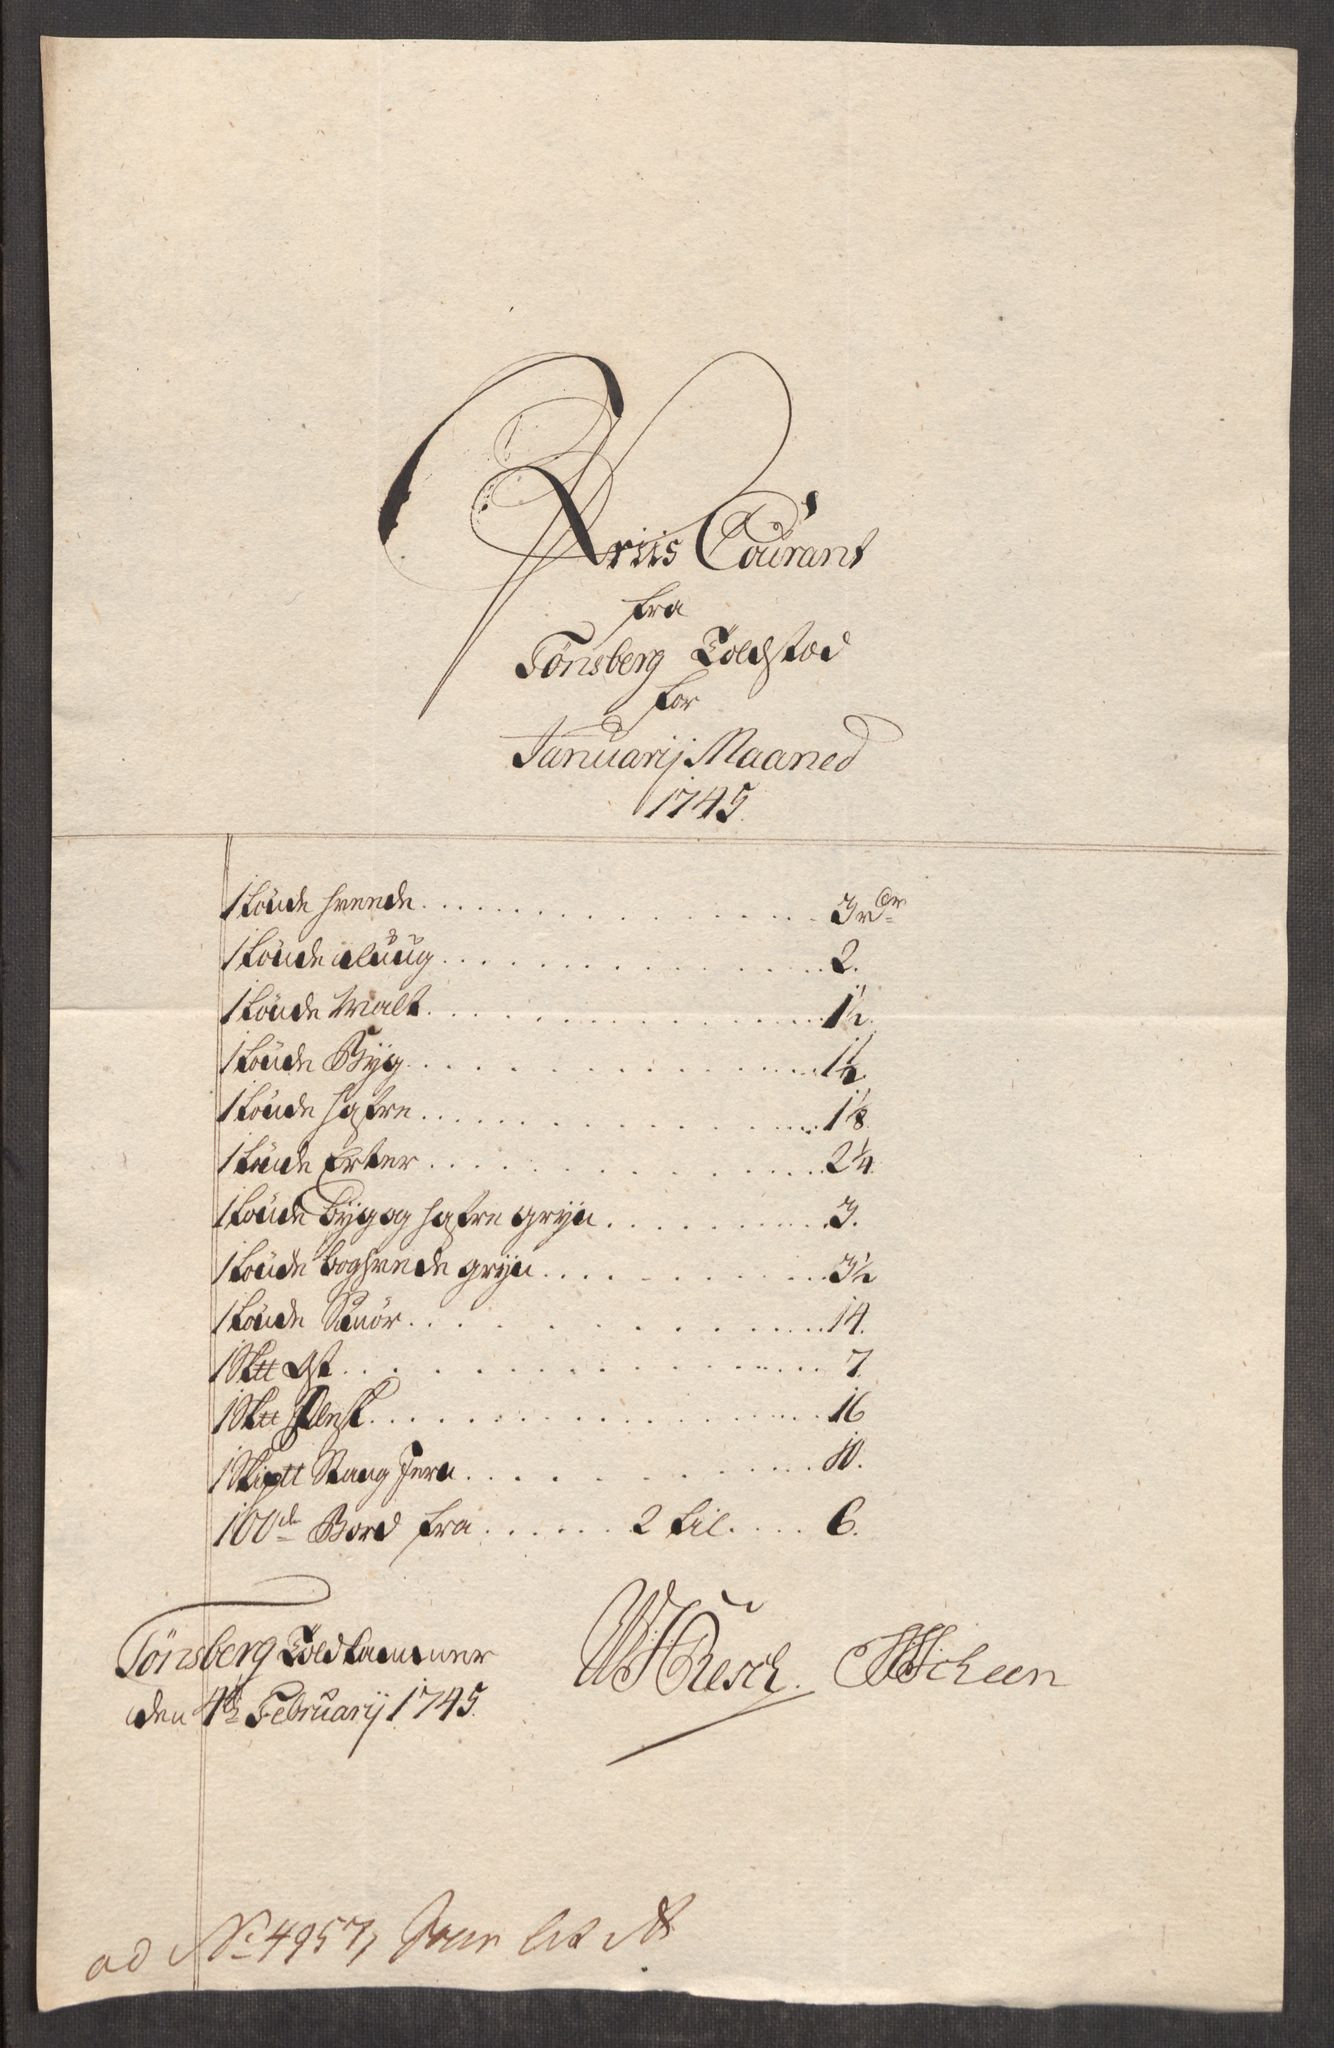 Priis Courant
fra
Tönsberg Toldstæd
for
Januarij Maaned
1745.
1 tönde hveede 3 rdr
1 tönde Ruug 2.
1 tönde Malt 1½.
1 tönde Byg 1½.
1 tönde hafre 1⅛.
1 tönde Erter 2¼.
1 tönde Byg og hafre gryn 3.
1 tönde boghvede gryn 3½
1 tönde Smör 14.
1 Sk℔ Ost 7.
1 Sk℔ flesk 16
1 Skip℔ Stang Jern 10.
100de Bord fra 2 til 6.
Tönsberg Toldkammer
den 4de Februarij 1745.
Resch. Scheen
ad No 4957, Jour lit